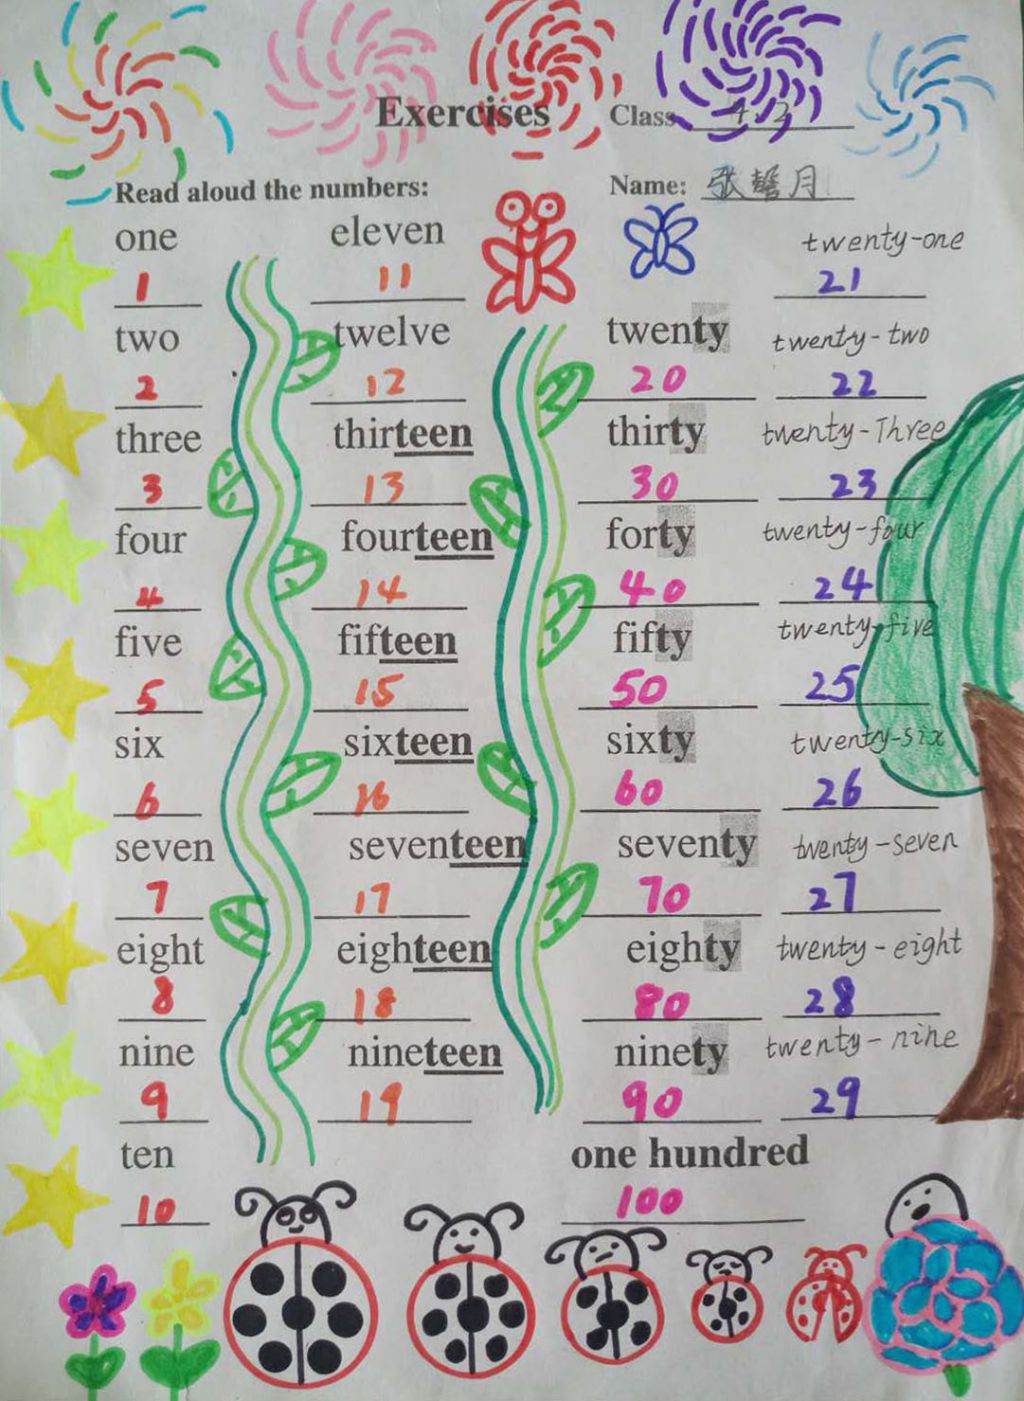 Exercises Class 4.2
Read aloud the numbers: Name: 张 月
one eleven twenty-one
1 11 21
two twelve twenty twenty-two
2 12 20 22
three thirteen thirty twenty-Three
3 13 30 23
four fourteen forty twenty-four
4 14 40 24
five fifteen fifty twenty-five
5 15 50 25
six sixteen sixty twenty-six
6 16 60 26
seven seventeen seventy twenty-seven
7 17 70 27
eight eighteen eighty twenty-eight
8 18 80 28
nine nineteen ninety twenty-nine
9 19 90 29
ten one hundred
10 100